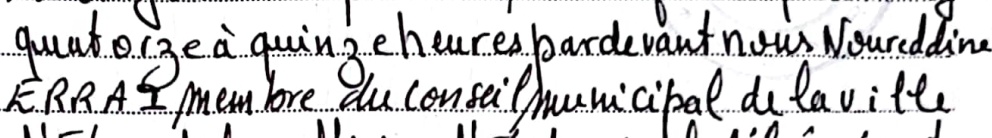 quatorze à quinze heures pardevant nous Noureddine
ERRAI membre du conseil municipal de la ville